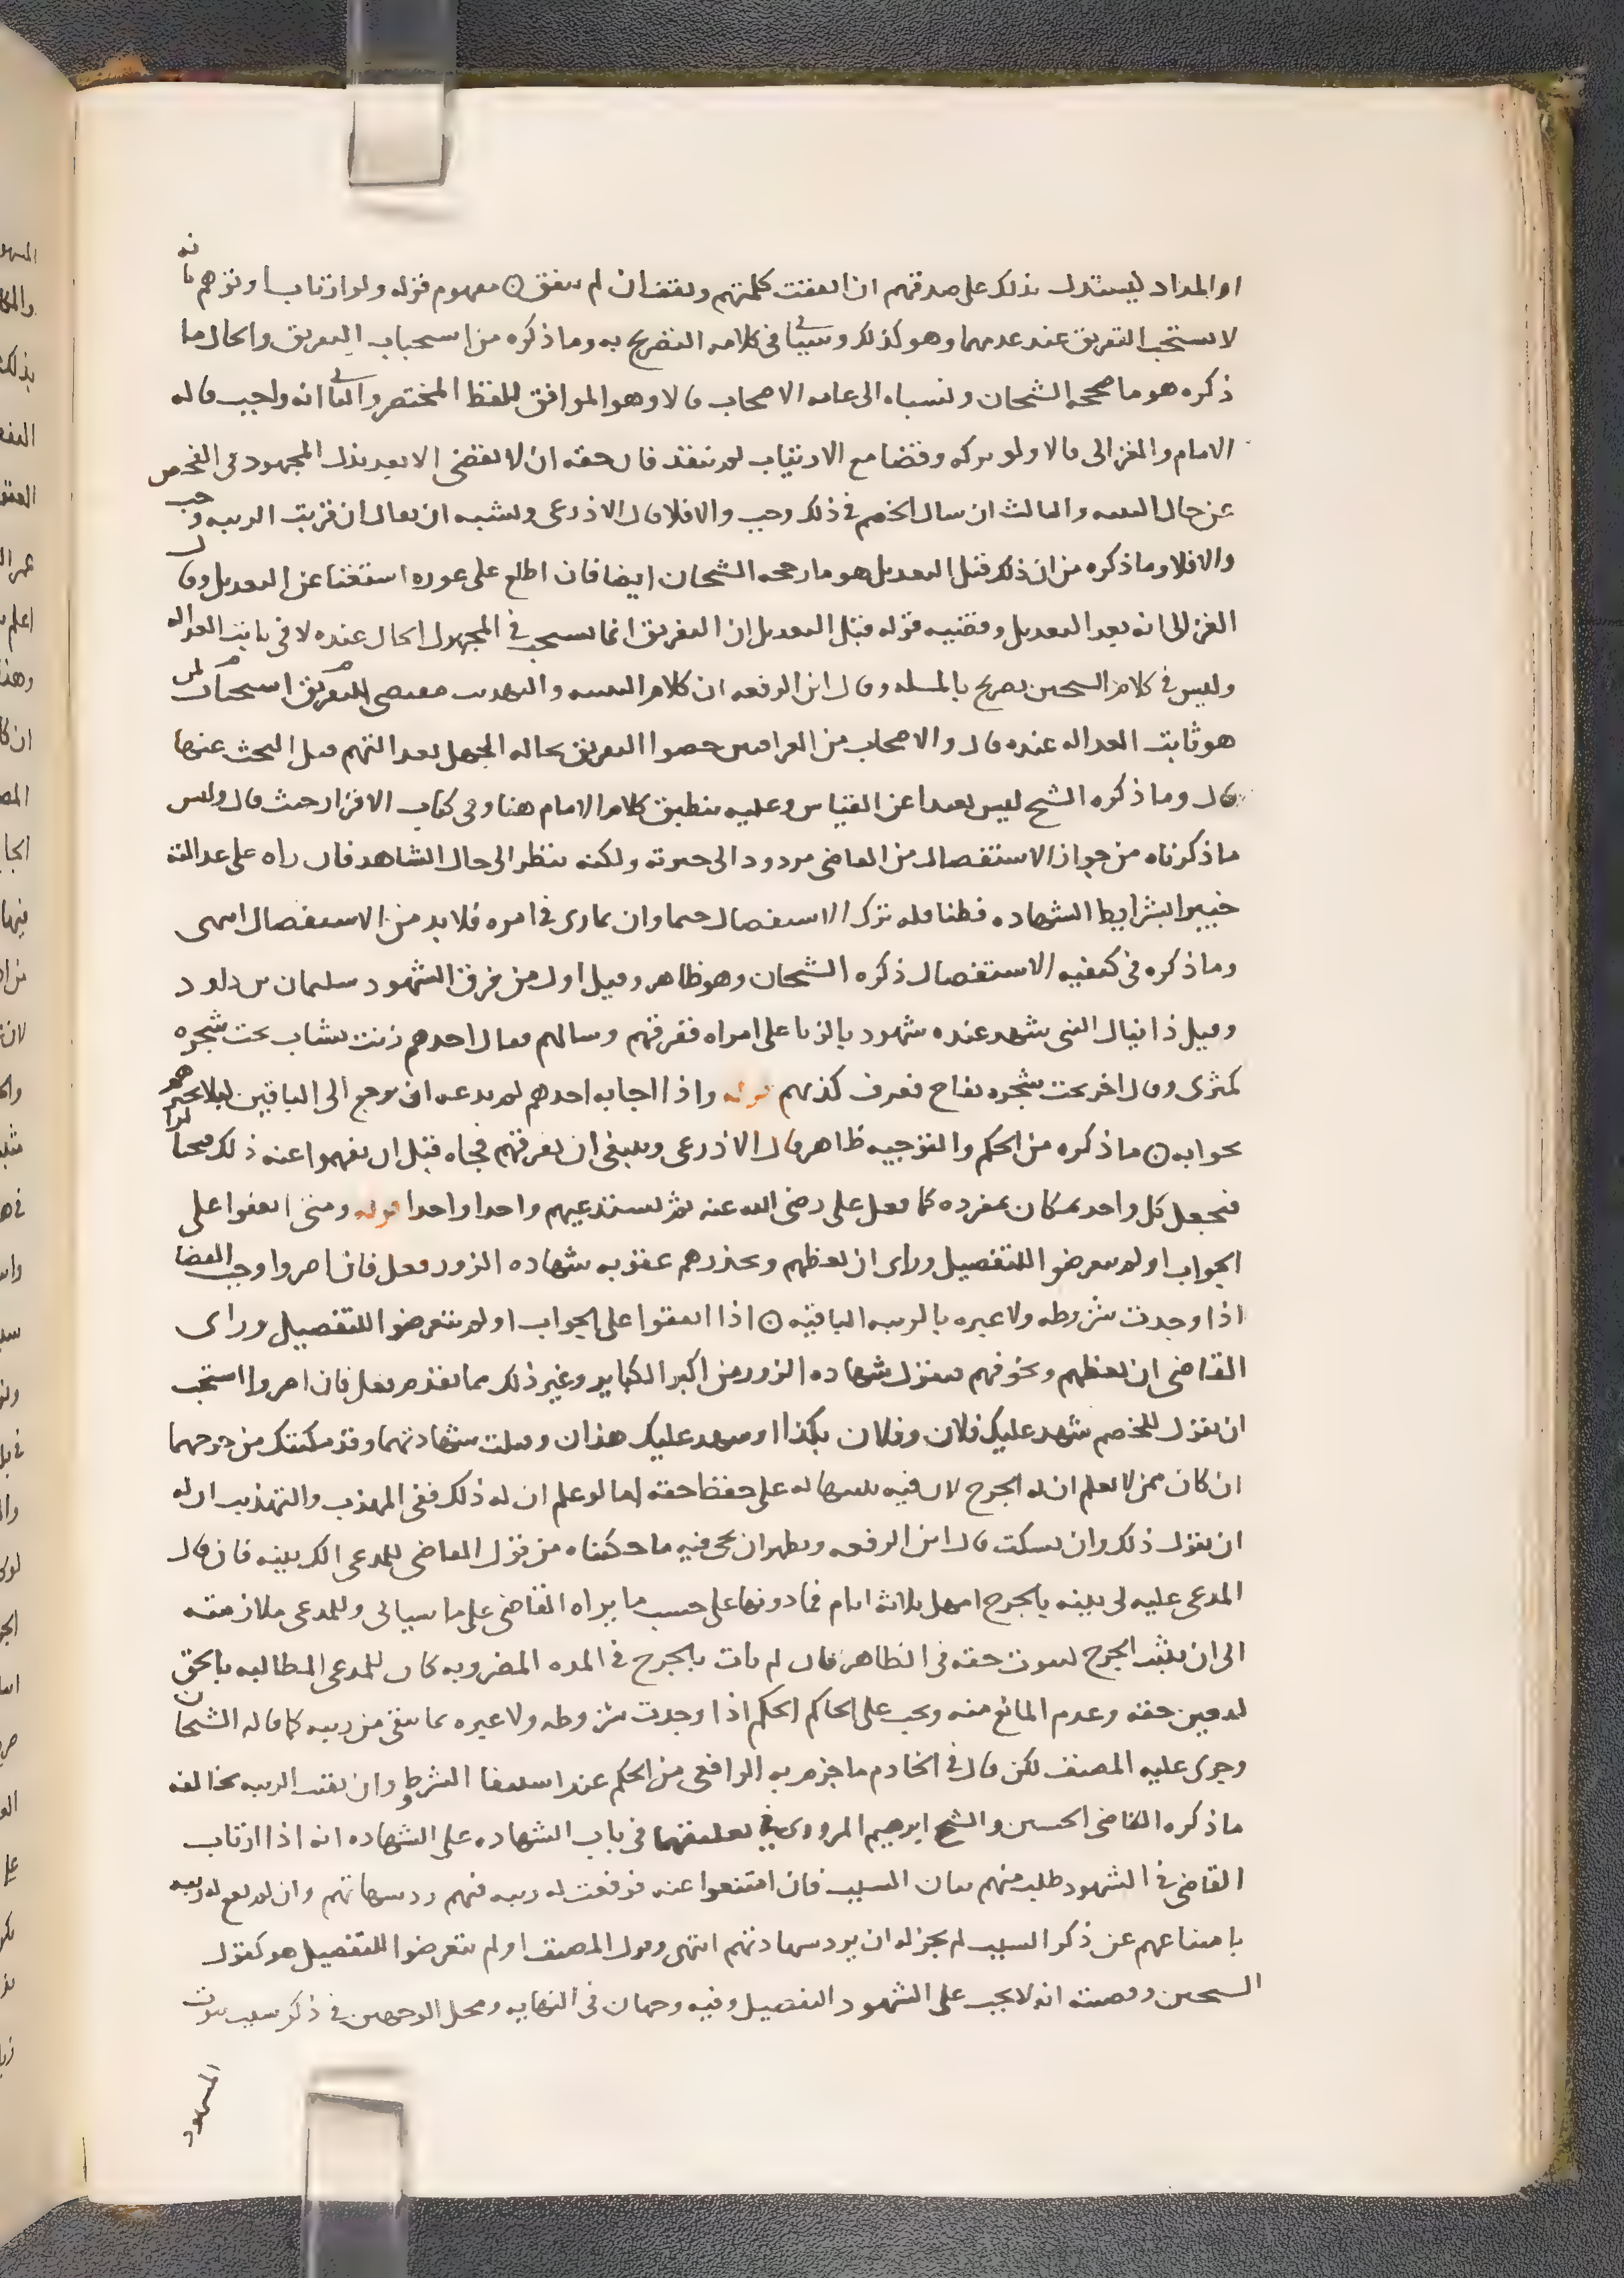 او المداد ليستدل بذلك على صدقهم ان اتفقت كلمتهم ويقف ان لم يتفق ن مفهوم قوله ولو ارتاب او توهم انه
لا يستحب التفريق عند عدمهما وهو كذلك وسياتي في كلامه التصريح به وما ذكره من استحباب التفريق والحال ما
ذكره هو ما صححه الشيخان ونسباه الى عامه الاصحاب قالا وهو الموافق للفظ المختصر والثاني انه واجب قاله
الامام والغزالي قالا ولو تركه وقضا مع الارتياب لم ينفذ فان حقه ان لا يقضي الا بعد بذل المجهود في الفحص
عن حال البينه والثالث ان سال الخصم في ذلك وجب والا فلا قال الاذرعي ويشبه ان يقال ان قويت الريبه وجب
والا فلا وما ذكره من ان ذلك قبل التعديل هو ما رجحه الشيخان ايضا فان اطلع على عوره استغنا عن التعديل وقال
الغزالي انه بعد التعديل وقضيه قوله قبل التعديل ان التفريق انما يستحب في المجهول الحال عنده لا في ثابت العداله
وليس في كلام الشيخين تصريح بالمسله وقال ابن الرفعه ان كلام التنبيه والتهذيب مقتضي للتفريق استحبابا لمن
هو ثابت العداله عنده قال والاصحاب من العراقيين خصوا التفريق بحاله الجهل بعدالتهم قبل البحث عنها
قال وما ذكره الشيخ ليس بعيدا عن القياس وعليه ينطبق كلام الامام هنا وفي كتاب الاقرار حيث قال وليس
ما ذكرناه من جواز الاستفصال من القاضي مردود الى خيرته ولكنه ينظر الى حال الشاهد فان راه على عدالته
خبيرا بشرايط الشهاده فطنا فله ترك الاستفصال حتما وان تمارى في امره فلا بد من الاستفصال انتهى
وما ذكره في كيفيه الاستفصال ذكره الشيخان وهو ظاهر وقيل اول من فرق الشهود سليمان بن داود
وقيل دانيال النبي شهد عنده شهود بالزنا على امراه ففرقهم وسالهم فقال احدهم زنت بشاب تحت شجره
كمثرى وقال اخر تحت شجره تفاح فعرف كذبهم قوله واذا اجابه احدهم لم يدعه ان يرجع الى الباقين ليلا يخبرهم
بجوابه ن ما ذكره من الحكم والتوجيه ظاهر قال الاذرعي وينبغي ان يفرقهم فجاه قبل ان يفهموا عنه ذلك
فيجعل كل واحد بمكان بمفرده كما فعل علي رضي الله عنه ثم يستدعيهم واحدا واحدا قوله ومتى اتفقوا على
الجواب او لم يتعرضوا للتفصيل وراى ان يعظهم ويحذرهم عقوبه شهاده الزور فعل فان اصروا وجب القضا
اذا وجدت شروطه ولا عبره بالريبه الباقيه ن اذا اتفقوا على الجواب او لم يتعرضوا للتفصيل وراى
القاضي ان يعظهم ويخوفهم فيقول شهاده الزور من اكبر الكباير وغير ذلك مما تقدم فعل فان اصروا استحب
ان يقول للخصم شهد عليك فلان وفلان بكذا او شهد عليك هذان وقبلت شهادتهما وقد مكنتك من جرحهما
ان كان ممن لا يعلم ان له الجرح لان فيه تنبيها له على حفظ حقه اما لو علم ان له ذلك ففي المهذب والتهذيب ان له
ان يقول ذلك وان يسكت قال ابن الرفعه ويظهر ان يجي فيه ما حكيناه من قول القاضي للمدعي الك بينه فان قال
المدعى عليه لي بينه بالجرح امهل ثلاثه ايام فما دونها على حسب ما يراه القاضي على ما سياتي وللمدعي ملازمته
الى ان يثبت الجرح لثبوت حقه في الظاهر فان لم يات بالجرح في المده المضروبه كان للمدعي المطالبه بالحق
لتعيين حقه وعدم المانع منه ويجب على الحاكم الحكم اذا وجدت شروطه ولا عبره بما يبقى من ريبه كما قاله الشيخان
وجرى عليه المصنف لكن قال في الخادم ما جزم به الرافعي من الحكم عند استيفا الشروط وان بقيت الريبه يخالفه
ما ذكره القاضي الحسين والشيخ ابرهيم المروذي في تعليقهما في باب الشهاده على الشهاده انه اذا ارتاب
القاضي في الشهود طلب منهم بيان السبب فان امتنعوا عنه فوقعت له ريبه فيهم رد شهاداتهم وان لم يقع له ريبه
بامتناعهم عن ذكر السبب لم يجز له ان يرد شهادتهم انتهى وقول المصنف او لم يتعرضوا للتفصيل هو كقول
الشيخين وقضيته انه لا يجب على الشهود التفصيل وفيه وجهان في النهايه ومحل الوجهين في ذكر سبب ثبوت
المشهود